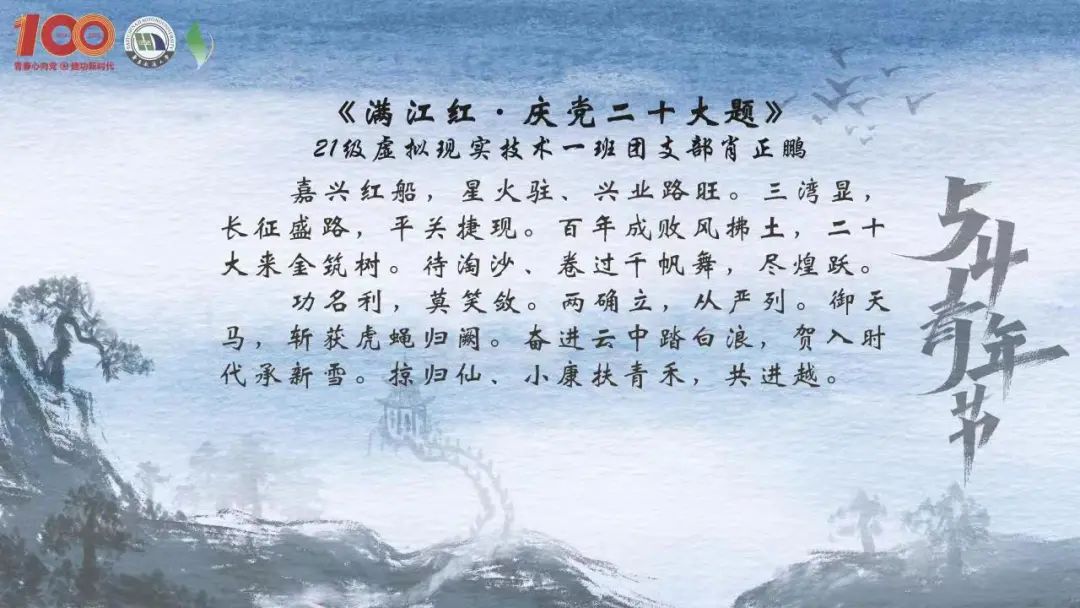 100
青春心向党 建功新时代
《满江红·庆党二十大题》
21级虚拟现实技术一班团支部肖正鹏
嘉兴红船，星火驻、兴业路旺。三湾显，
长征盛路，平关捷现。百年成败风拂土，二十
大来金筑树。待淘沙、卷过千帆舞，尽煌跃。
功名利，莫笑敛。两确立，从严列。御天
马，斩获虎蝇归阙。奋进云中踏白浪，贺入时
代承新雪。掠归仙、小康扶青禾，共进越。
五四青年节